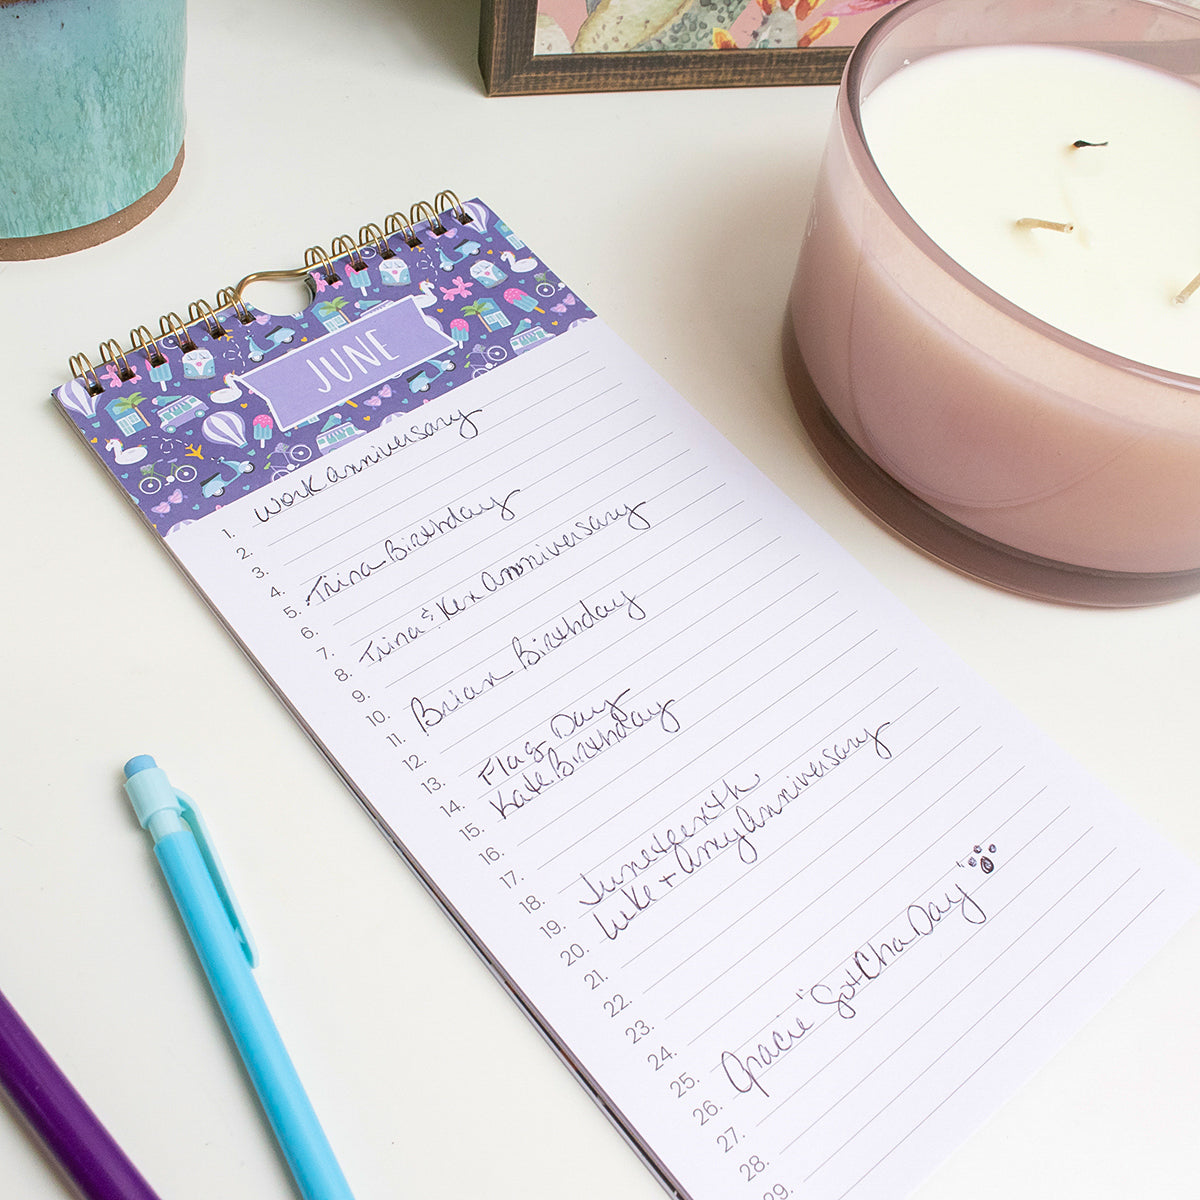 JUNE
1. Work Anniversary
2.
3.
4.
5. Trina Birthday
6.
7.
8. Trina & Ken Anniversary
9.
10.
11. Brian Birthday
12.
13.
14. Flag Day
15. Kate Birthday
16.
17.
18.
19. Juneteenth
20. Luke + Amy Anniversary
21.
22.
23.
24.
25.
26. Gracie "GotCha Day"
27.
28.
29.